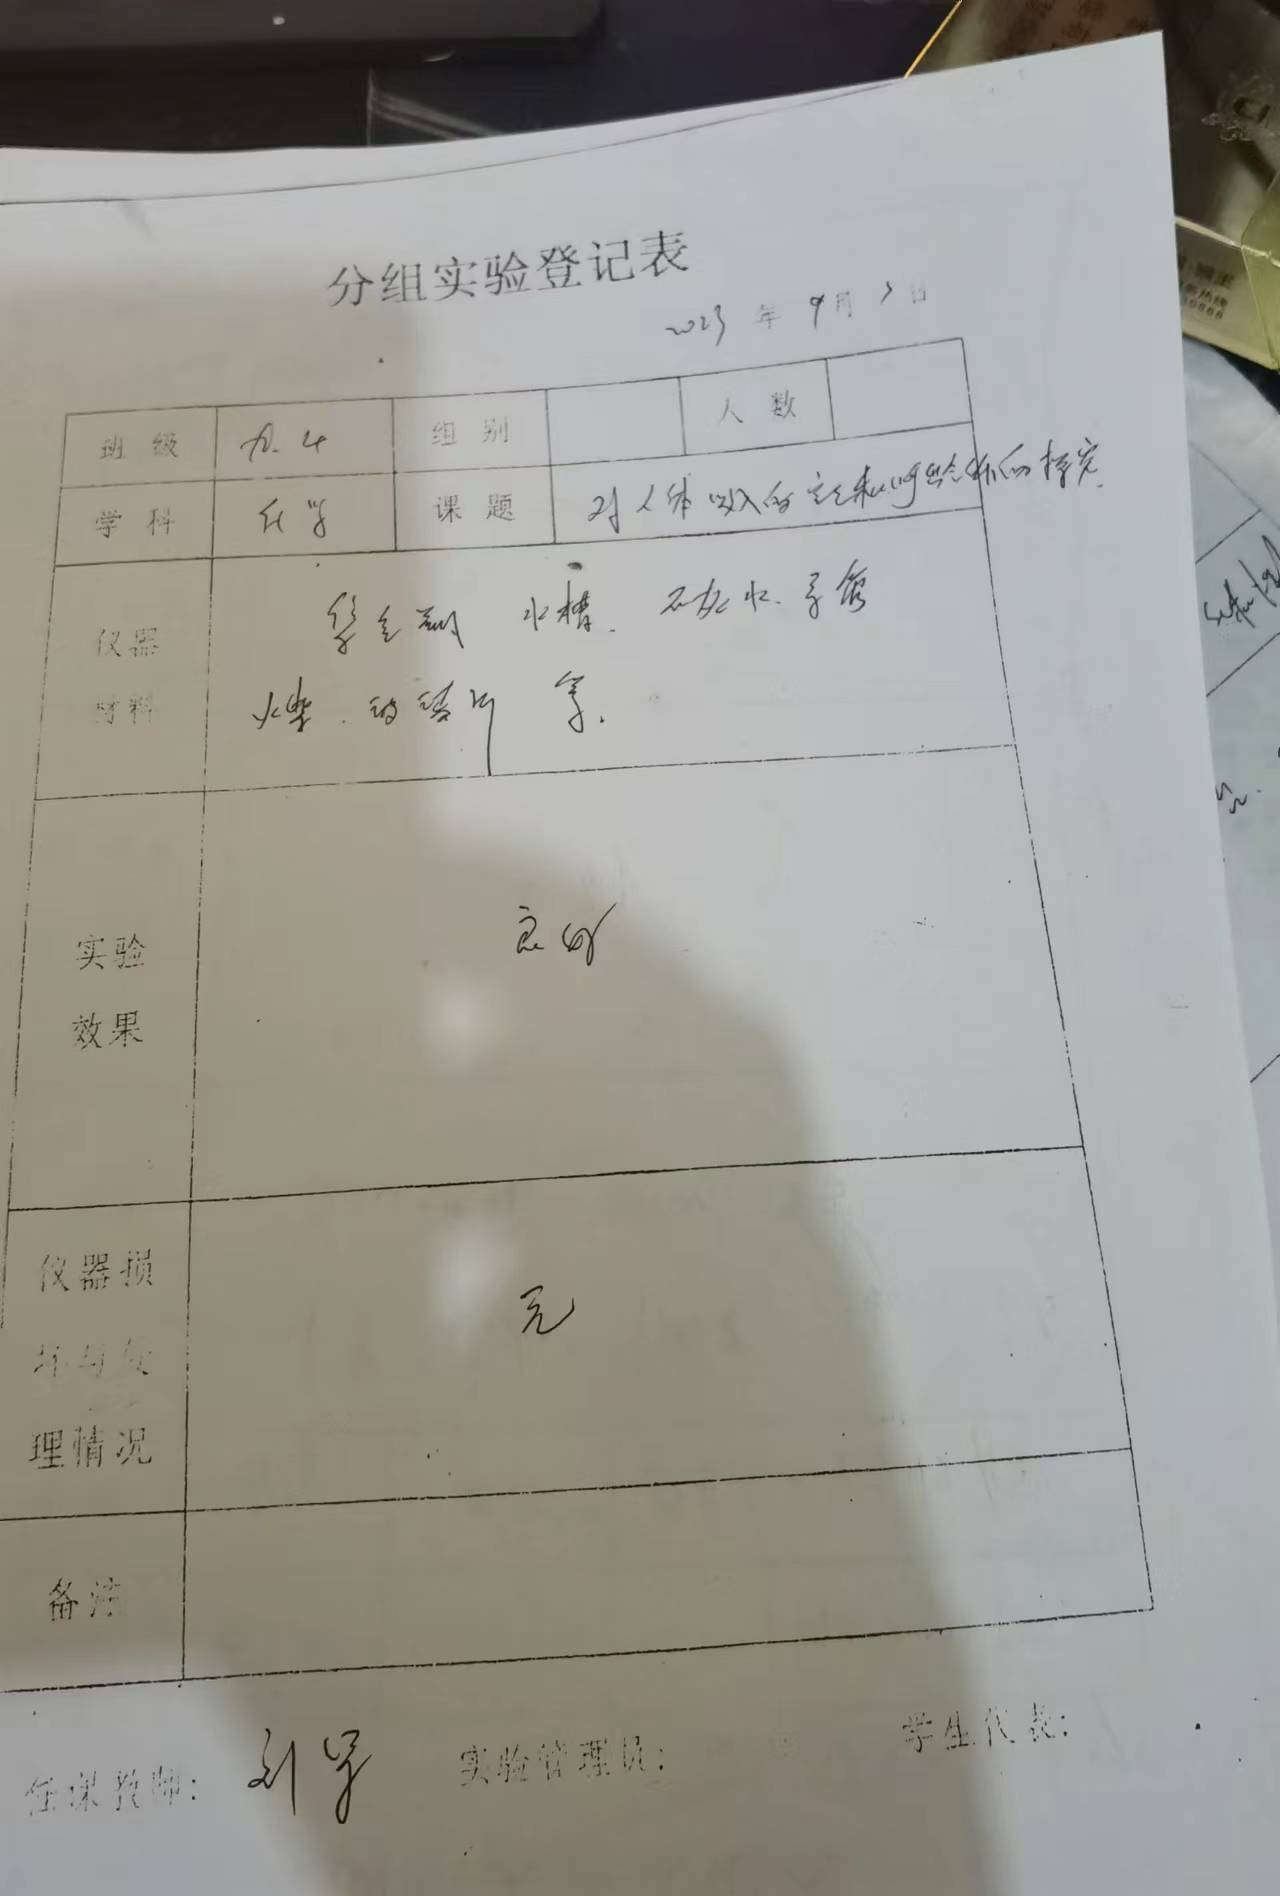 分组实验登记表
2023 年 9月 3日
班级 九.4 组别 人数
学科 化学 课题 对人体吸入的空气和呼出气体的探究
仪器 集气瓶 水槽. 石灰水. 导管
材料 火柴. 玻璃片 等.
实验
效果
良好
仪器损
坏与处
理情况
无
备注
任课教师: 刘 实验管理员: 学生代表: